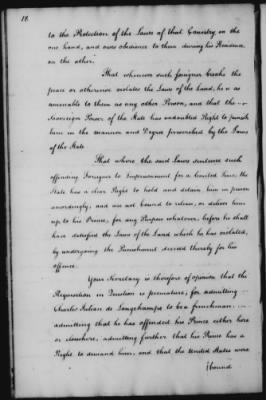 18.
to the Protection of the Laws of that Country on the
one hand, and owes obedience to them during his Residence
on the other.
That whenever such foreigner breaks the
peace or otherwise violates the Laws of the land, he is as
amenable to them as any other Person, and that the
Sovereign Power of the State has undoubted Right to punish
him in the manner and Degree prescribed by the Laws
of the State
That where the said Laws sentence such
offending Foreigner to Imprisonment for a limited time, the
State has a clear Right to hold and detain him in prison
accordingly, and are not bound to release, or deliver him
up to his Prince, for any Purpose whatever, before he shall
have satisfied the Laws of the Land which he has violated,
by undergoing the Punishment decreed thereby for his
offence.
Your Secretary is therefore of opinion that the
Requisition in Question is premature, for admitting
Charles Julian de Longchamps to be a frenchman,
admitting that he has offended his Prince either here
or elsewhere, admitting further that his Prince has a
Right to demand him, and that the United States were
bound